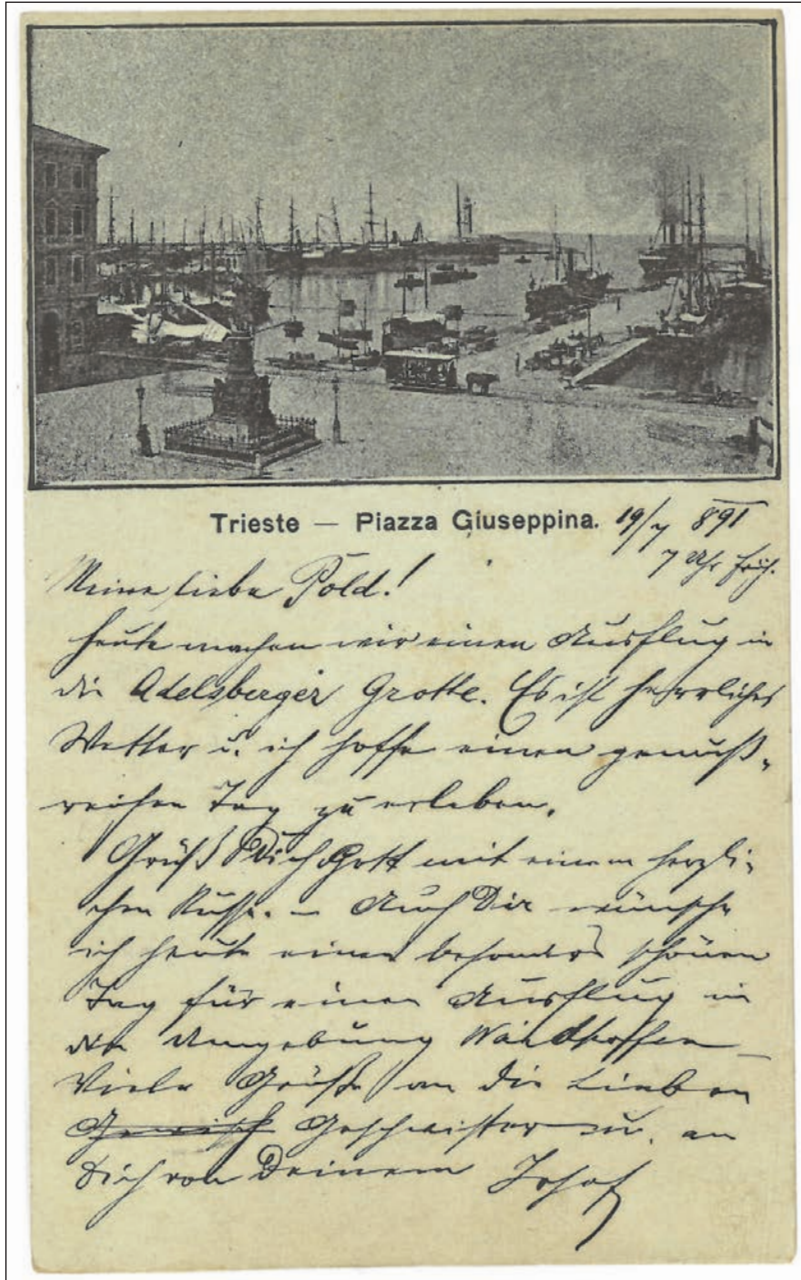 Trieste — Piazza Giuseppina. 19/7 891
7 Uhr früh.
Meine liebe Pold!
Heute machen wir einen Ausflug in
die Adelsberger Grotte. Es ist herrliches
Wetter u. ich hoffe einen genuß-
reichen Tag zu erleben.
Grüß Dich Gott mit einem herzli-
chen Kusse. – Auch Dir wünsche
ich heute einen besonders schönen
Tag für einen Ausflug in
die Umgebung Waidhofen
Viele Grüße an die Lieben
Geschwister u. an
Dich von Deinem Josef